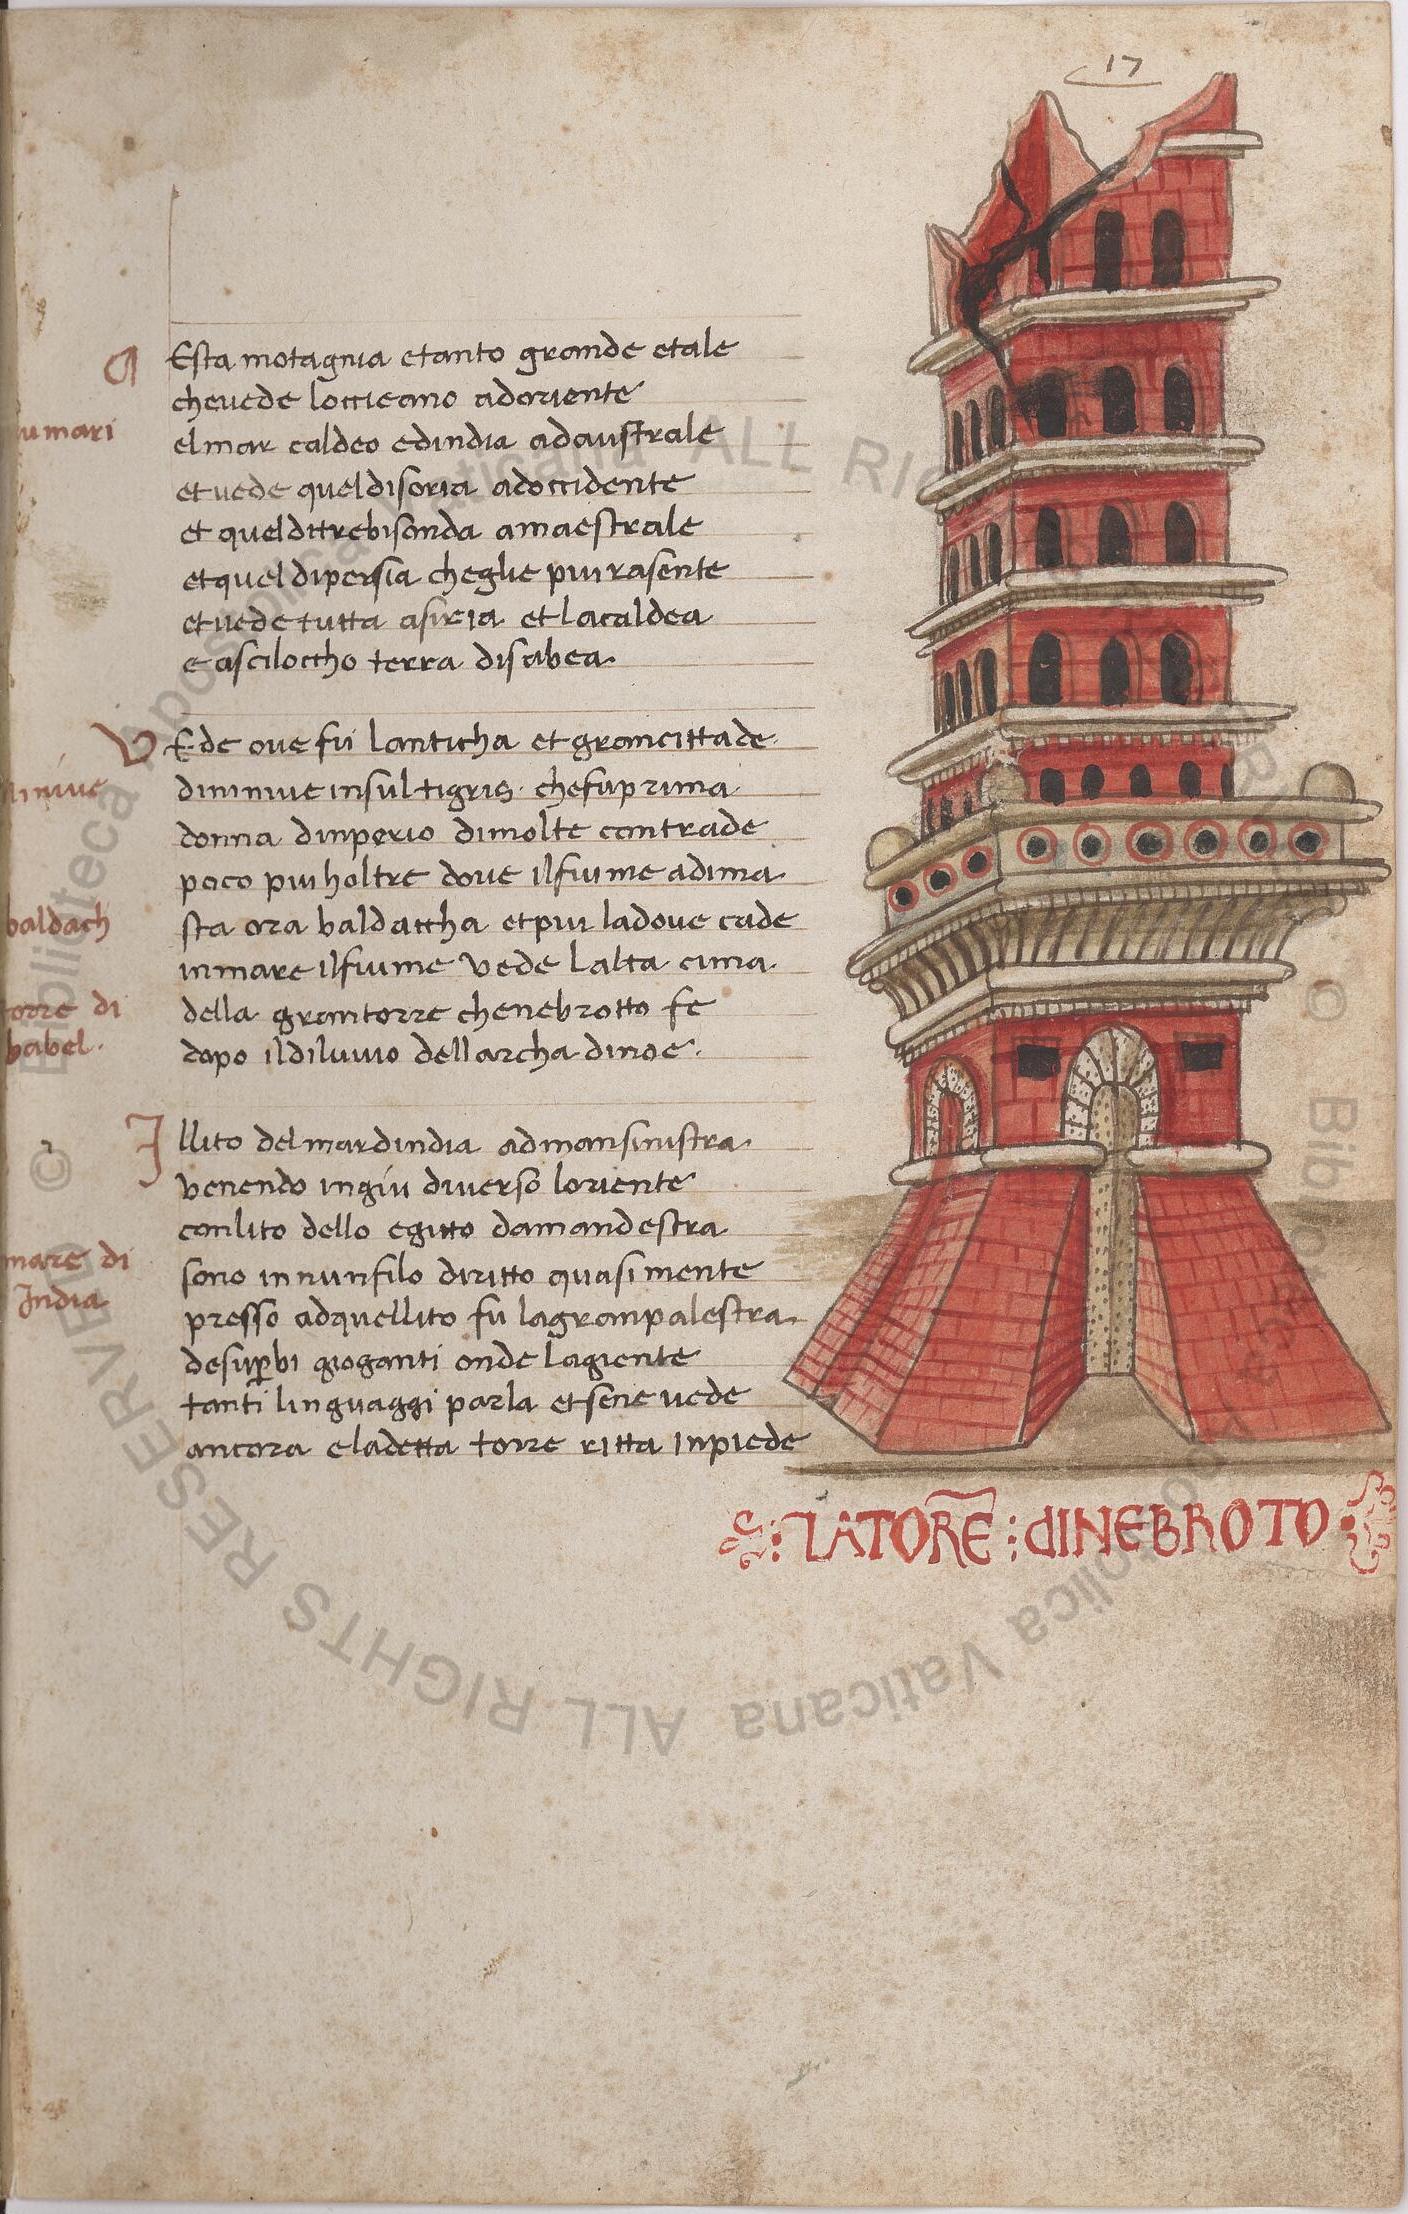 17
Esta motagnia etanto grande etale
cheuede loccieano adoriente
umari
elmar caldeo edindia adaustrale
etuede queldisoria adoccidente
et quelditrebisonda amaestrale
etquel dipersia cheglie piu rasente
etuede tutta asiria et lacaldea
e asciloccho terra disabea.
VEde oue fu lanticha et grancittade
ninive
dininiue insul tigris. chefuprima
donna dinperio dimolte contrade
poco piu holtre doue ilfiume adima
baldach
sta ora baldaccha etpiu ladoue cade
inmare ilfiume vede lalta cima
torre di
della grantorre chenebrotto fe
babel.
dopo ildiluuio dellarcha dinoe.
Illito delmardindia admansinistra
venendo ingiu diuerso loriente
conlito dello egitto damandestra
mare di
India
sono innunfilo diritto quasimente
presso adquellito fu lagranpalestra
desuperbi gioganti onde lagiente
tanti linguaggi parla etsene uede
ancora eladetta torre ritta inpiede
:LATORE:DINEBROTO:
Biblioteca Apostolica Vaticana ALL RIGHTS RESERVED ©
© Biblioteca Apostolica Vaticana ALL RIGHTS RESERVED